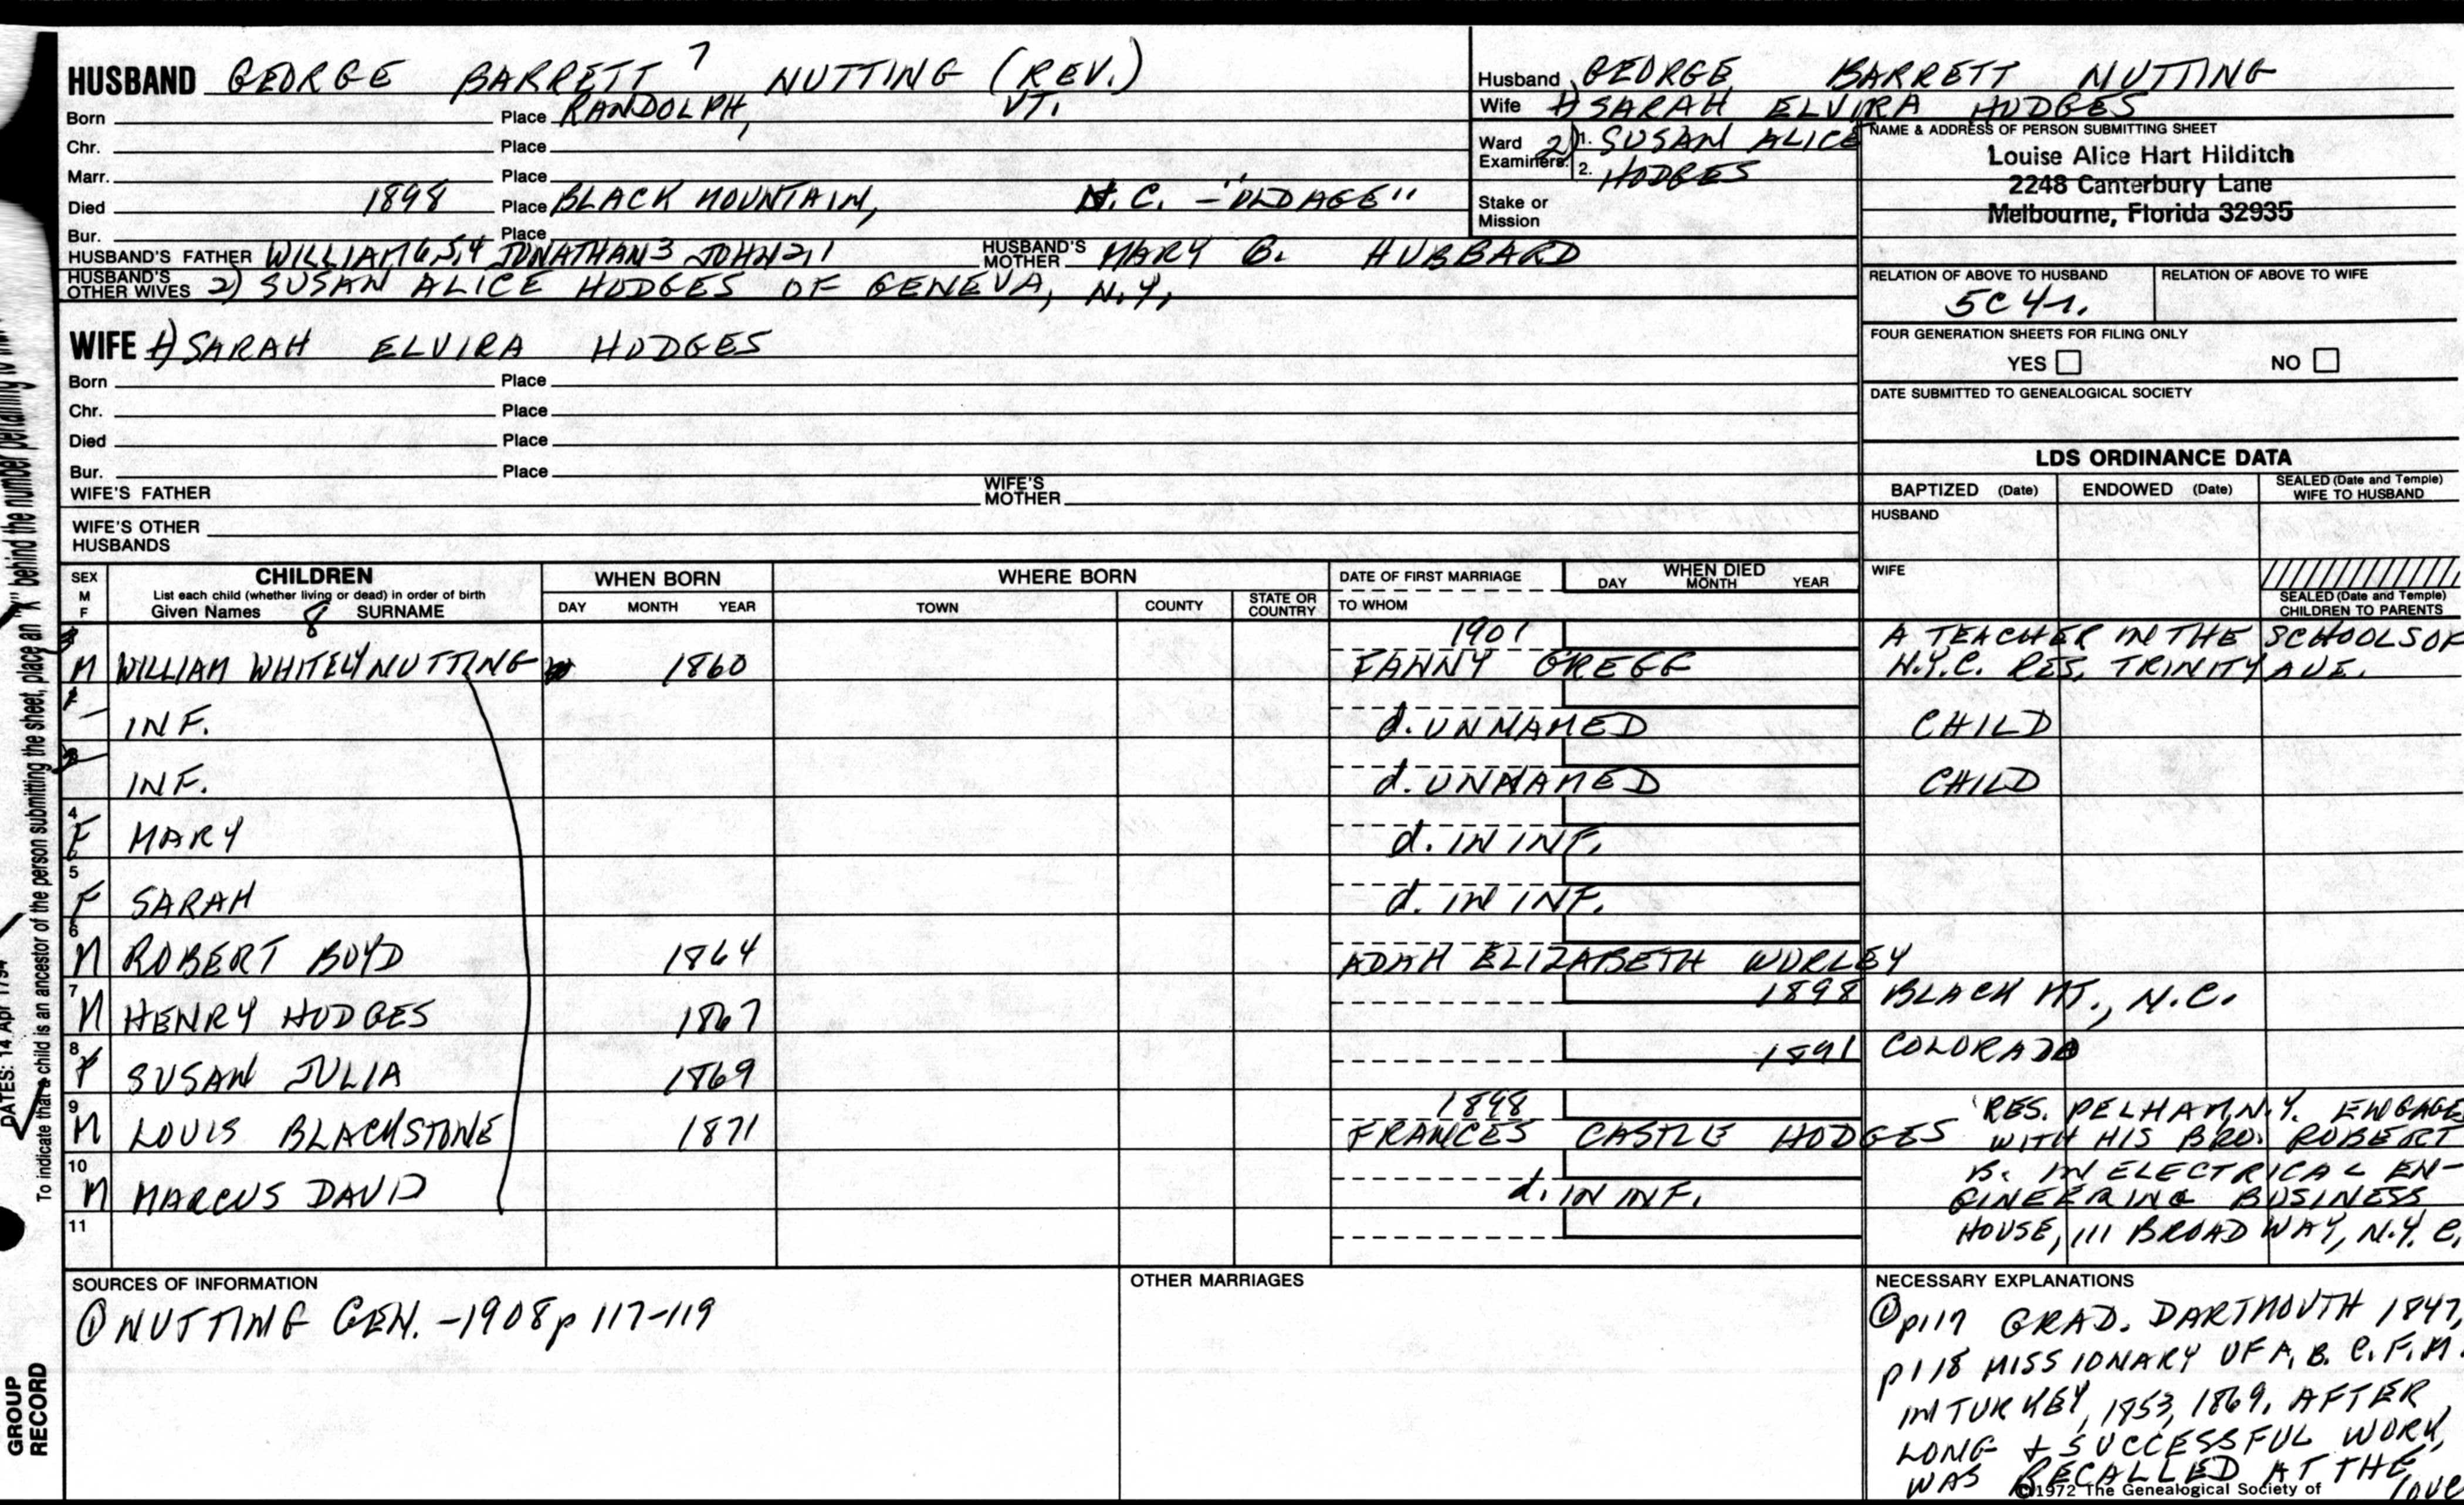 HUSBAND GEORGE BARRETT 7 NUTTING (REV.)
Born Place RANDOLPH, VT.
Chr. Place
Marr. Place
Died 1898 Place BLACK MOUNTAIN, N.C. - "OLD AGE"
Bur. Place
HUSBAND'S FATHER WILLIAM 6,5,4 JONATHAN 3 JOHN 2,1 HUSBAND'S MOTHER MARY B. HUBBARD
HUSBAND'S OTHER WIVES 2) SUSAN ALICE HODGES OF GENEVA, N.Y.
Husband GEORGE BARRETT NUTTING
Wife 1) SARAH ELVIRA HODGES
Ward Examiners: 2) 1. SUSAN ALICE
2. HODGES
Stake or Mission
NAME & ADDRESS OF PERSON SUBMITTING SHEET
Louise Alice Hart Hilditch
2248 Canterbury Lane
Melbourne, Florida 32935
RELATION OF ABOVE TO HUSBAND RELATION OF ABOVE TO WIFE
5C 4r.
FOUR GENERATION SHEETS FOR FILING ONLY
YES NO
DATE SUBMITTED TO GENEALOGICAL SOCIETY
WIFE 1) SARAH ELVIRA HODGES
Born Place
Chr. Place
Died Place
Bur. Place
WIFE'S FATHER WIFE'S MOTHER
WIFE'S OTHER HUSBANDS
LDS ORDINANCE DATA
BAPTIZED (Date) ENDOWED (Date) SEALED (Date and Temple) WIFE TO HUSBAND
HUSBAND
WIFE
SEALED (Date and Temple) CHILDREN TO PARENTS
SEX M F CHILDREN WHEN BORN WHERE BORN DATE OF FIRST MARRIAGE WHEN DIED
List each child (whether living or dead) in order of birth
Given Names 8 SURNAME DAY MONTH YEAR TOWN COUNTY STATE OR COUNTRY TO WHOM DAY MONTH YEAR
1901 A TEACHER IN THE SCHOOLS OF
M WILLIAM WHITELY NUTTING 1860 FANNY GREGG N.Y.C. RES. TRINITY AVE.
INF. d. UNNAMED CHILD
INF. d. UNNAMED CHILD
4 F MARY d. IN INF.
5 F SARAH d. IN INF.
6 M ROBERT BOYD 1864 ADAH ELIZABETH WORLEY
7 M HENRY HODGES 1867 1898 BLACK MT., N.C.
8 F SUSAN JULIA 1869 1891 COLORADO
9 M LOUIS BLACKSTONE 1871 1898 FRANCES CASTLE HODGES
RES. PELHAM, N.Y. ENGAGE
WITH HIS BRO. ROBERT
B. IN ELECTRICAL EN-
GINEERING BUSINESS
HOUSE, 111 BROADWAY, N.Y.C.
10 M MARCUS DAVID d. IN INF.
11
SOURCES OF INFORMATION
① NUTTING GEN. -1908 p 117-119
OTHER MARRIAGES
NECESSARY EXPLANATIONS
① p117 GRAD. DARTMOUTH 1847,
p118 MISSIONARY OF A.B.C.F.M.
IN TURKEY, 1853, 1869. AFTER
LONG & SUCCESSFUL WORK,
WAS RECALLED AT THE
©1972 The Genealogical Society of
DATES: 14 Apr 1794
To indicate that a child is an ancestor of the person submitting the sheet, place an "X" behind the number pertaining to
GROUP
RECORD